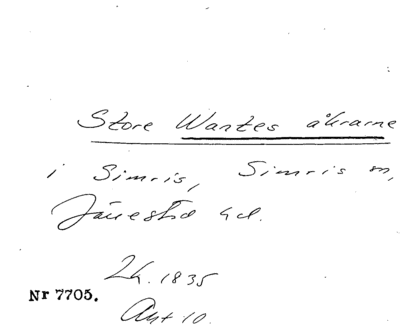 Store Wantes åkrarne
i Simris, Simris sn,
Järrestad hd.
Lh. 1835
Nr 7705.
Akt 10.